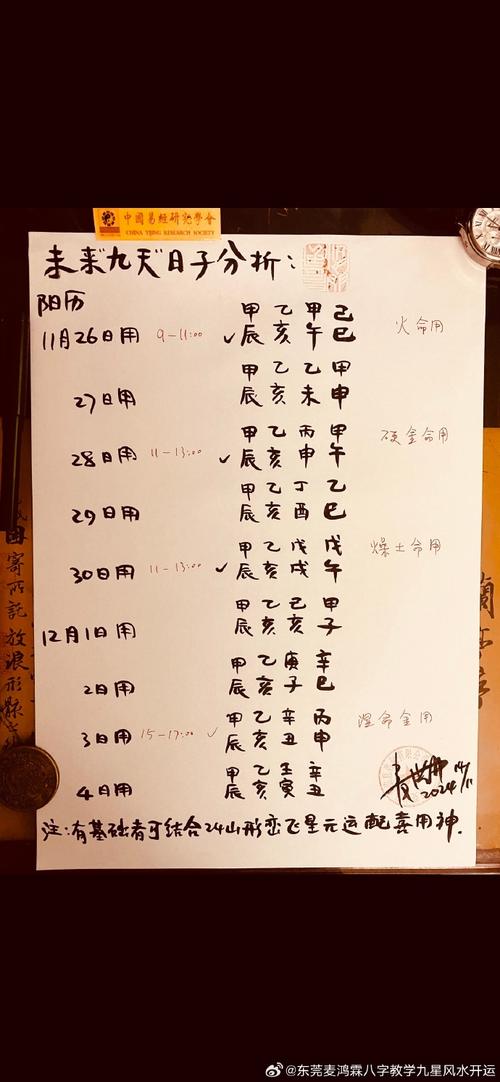 中國易經研究學會
CHINA YIJING RESEARCH SOCIETY
未来九天日子分析：
阳历
甲 乙 甲 己
11月26日用 9-11:00 ✓ 辰 亥 午 巳 火命用
甲 乙 乙 甲
27日用 辰 亥 未 申
甲 乙 丙 甲
28日用 11-13:00 ✓ 辰 亥 申 午 硬金命用
甲 乙 丁 乙
29日用 辰 亥 酉 巳
甲 乙 戊 戊
30日用 11-13:00 ✓ 辰 亥 戌 午 燥土命用
甲 乙 己 甲
12月1日用 辰 亥 亥 子
甲 乙 庚 辛
2日用 辰 亥 子 巳
甲 乙 辛 丙
3日用 15-17:00 ✓ 辰 亥 丑 申 湿命金用
甲 乙 壬 辛
4日用 辰 亥 寅 丑
2024
注：有基础者可结合24山形峦飞星元运配卖用神.
寄所託放浪形骸
@东莞麦鸿霖八字教学九星风水开运